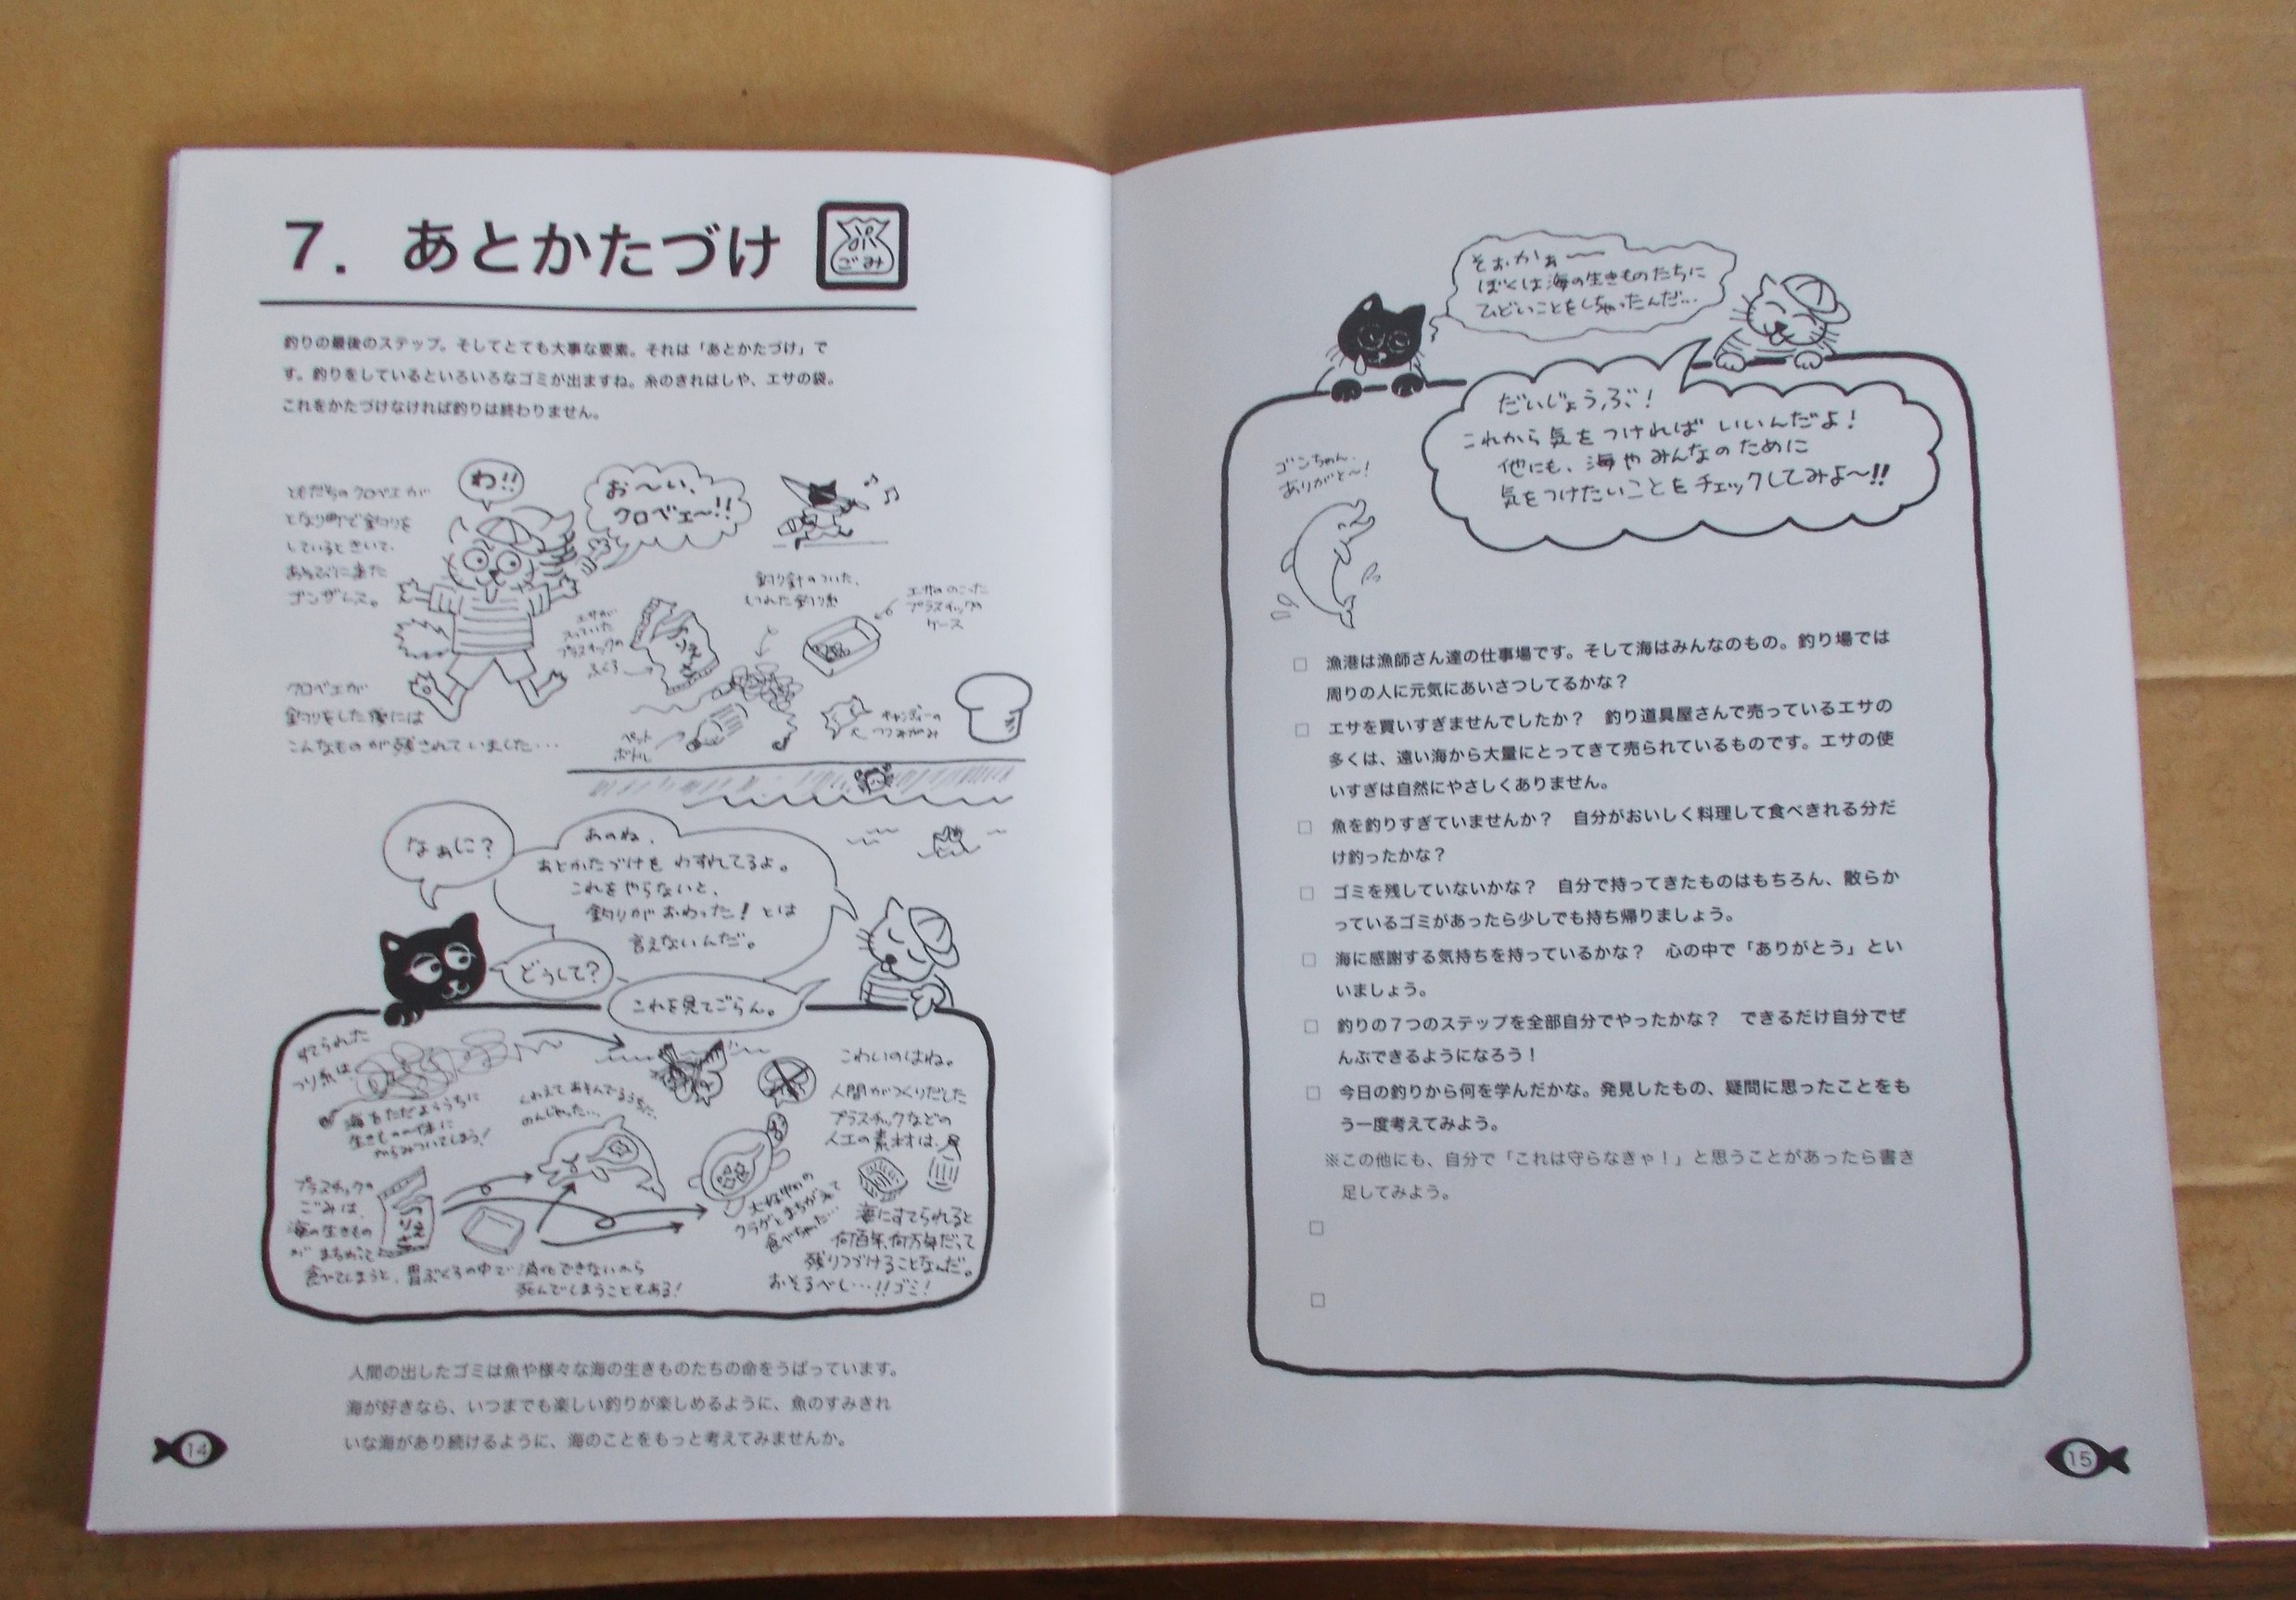 7. あとかたづけ
ごみ
釣りの最後のステップ。そしてとても大事な要素。それは「あとかたづけ」で
す。釣りをしているといろいろなゴミが出ますね。糸のきれはしや、エサの袋。
これをかたづけなければ釣りは終わりません。
ともだちのクロベエが
となり町で釣りを
しているときいて、
あそびに来た
ゴンザレス。
わ!!
お〜い、
クロベエ〜!!
釣り針のついた、
エサののこった
プラスチックの
ケース
エサが
入っていた
プラスチックの
ふくろ
つりえさ
ペット
ボトル
キャンディーの
つつみがみ
クロベエが
釣りをした後には
こんなものが残されていました…
なぁに?
あのね、
あとかたづけを わすれてるよ。
これをやらないと、
釣りがおわった! とは
言えないんだ。
どうして?
これを見てごらん。
すてられた
つり糸は
海をただよううちに
生きものの体に
からみついてしまう!
くわえてあそんでるうちに、
のんじゃった…
プラスチックの
ごみは、
海の生きもの
が まちがって
食べてしまうと、胃ぶくろの中で消化できないから
死んでしまうこともある!
つりえさ
クラゲとまちがえて
食べちゃった…
こわいのはね。
人間がつくりだした
プラスチックなどの
人工の素材は、
海にすてられると
何百年、何万年だって
残りつづけることなんだ。
おそるべし…!!ゴミ!
人間の出したゴミは魚や様々な海の生きものたちの命をうばっています。
海が好きなら、いつまでも楽しい釣りが楽しめるように、魚のすみきれ
いな海があり続けるように、海のことをもっと考えてみませんか。
14
そぉかぁ〜
ぼくは海の生きものたちに
ひどいことをしちゃったんだ…
だいじょうぶ!
これから気をつければ いいんだよ!
他にも、海やみんなのために
気をつけたいことをチェックしてみよ〜!!
ゴンちゃん、
ありがと〜!
□ 漁港は漁師さん達の仕事場です。そして海はみんなのもの。釣り場では
周りの人に元気にあいさつしてるかな?
□ エサを買いすぎませんでしたか? 釣り道具屋さんで売っているエサの
多くは、遠い海から大量にとってきて売られているものです。エサの使
いすぎは自然にやさしくありません。
□ 魚を釣りすぎていませんか? 自分がおいしく料理して食べきれる分だ
け釣ったかな?
□ ゴミを残していないかな? 自分で持ってきたものはもちろん、散らか
っているゴミがあったら少しでも持ち帰りましょう。
□ 海に感謝する気持ちを持っているかな? 心の中で「ありがとう」とい
いましょう。
□ 釣りの7つのステップを全部自分でやったかな? できるだけ自分でぜ
んぶできるようになろう!
□ 今日の釣りから何を学んだかな。発見したもの、疑問に思ったことをも
う一度考えてみよう。
※この他にも、自分で「これは守らなきゃ!」と思うことがあったら書き
足してみよう。
□
□
15